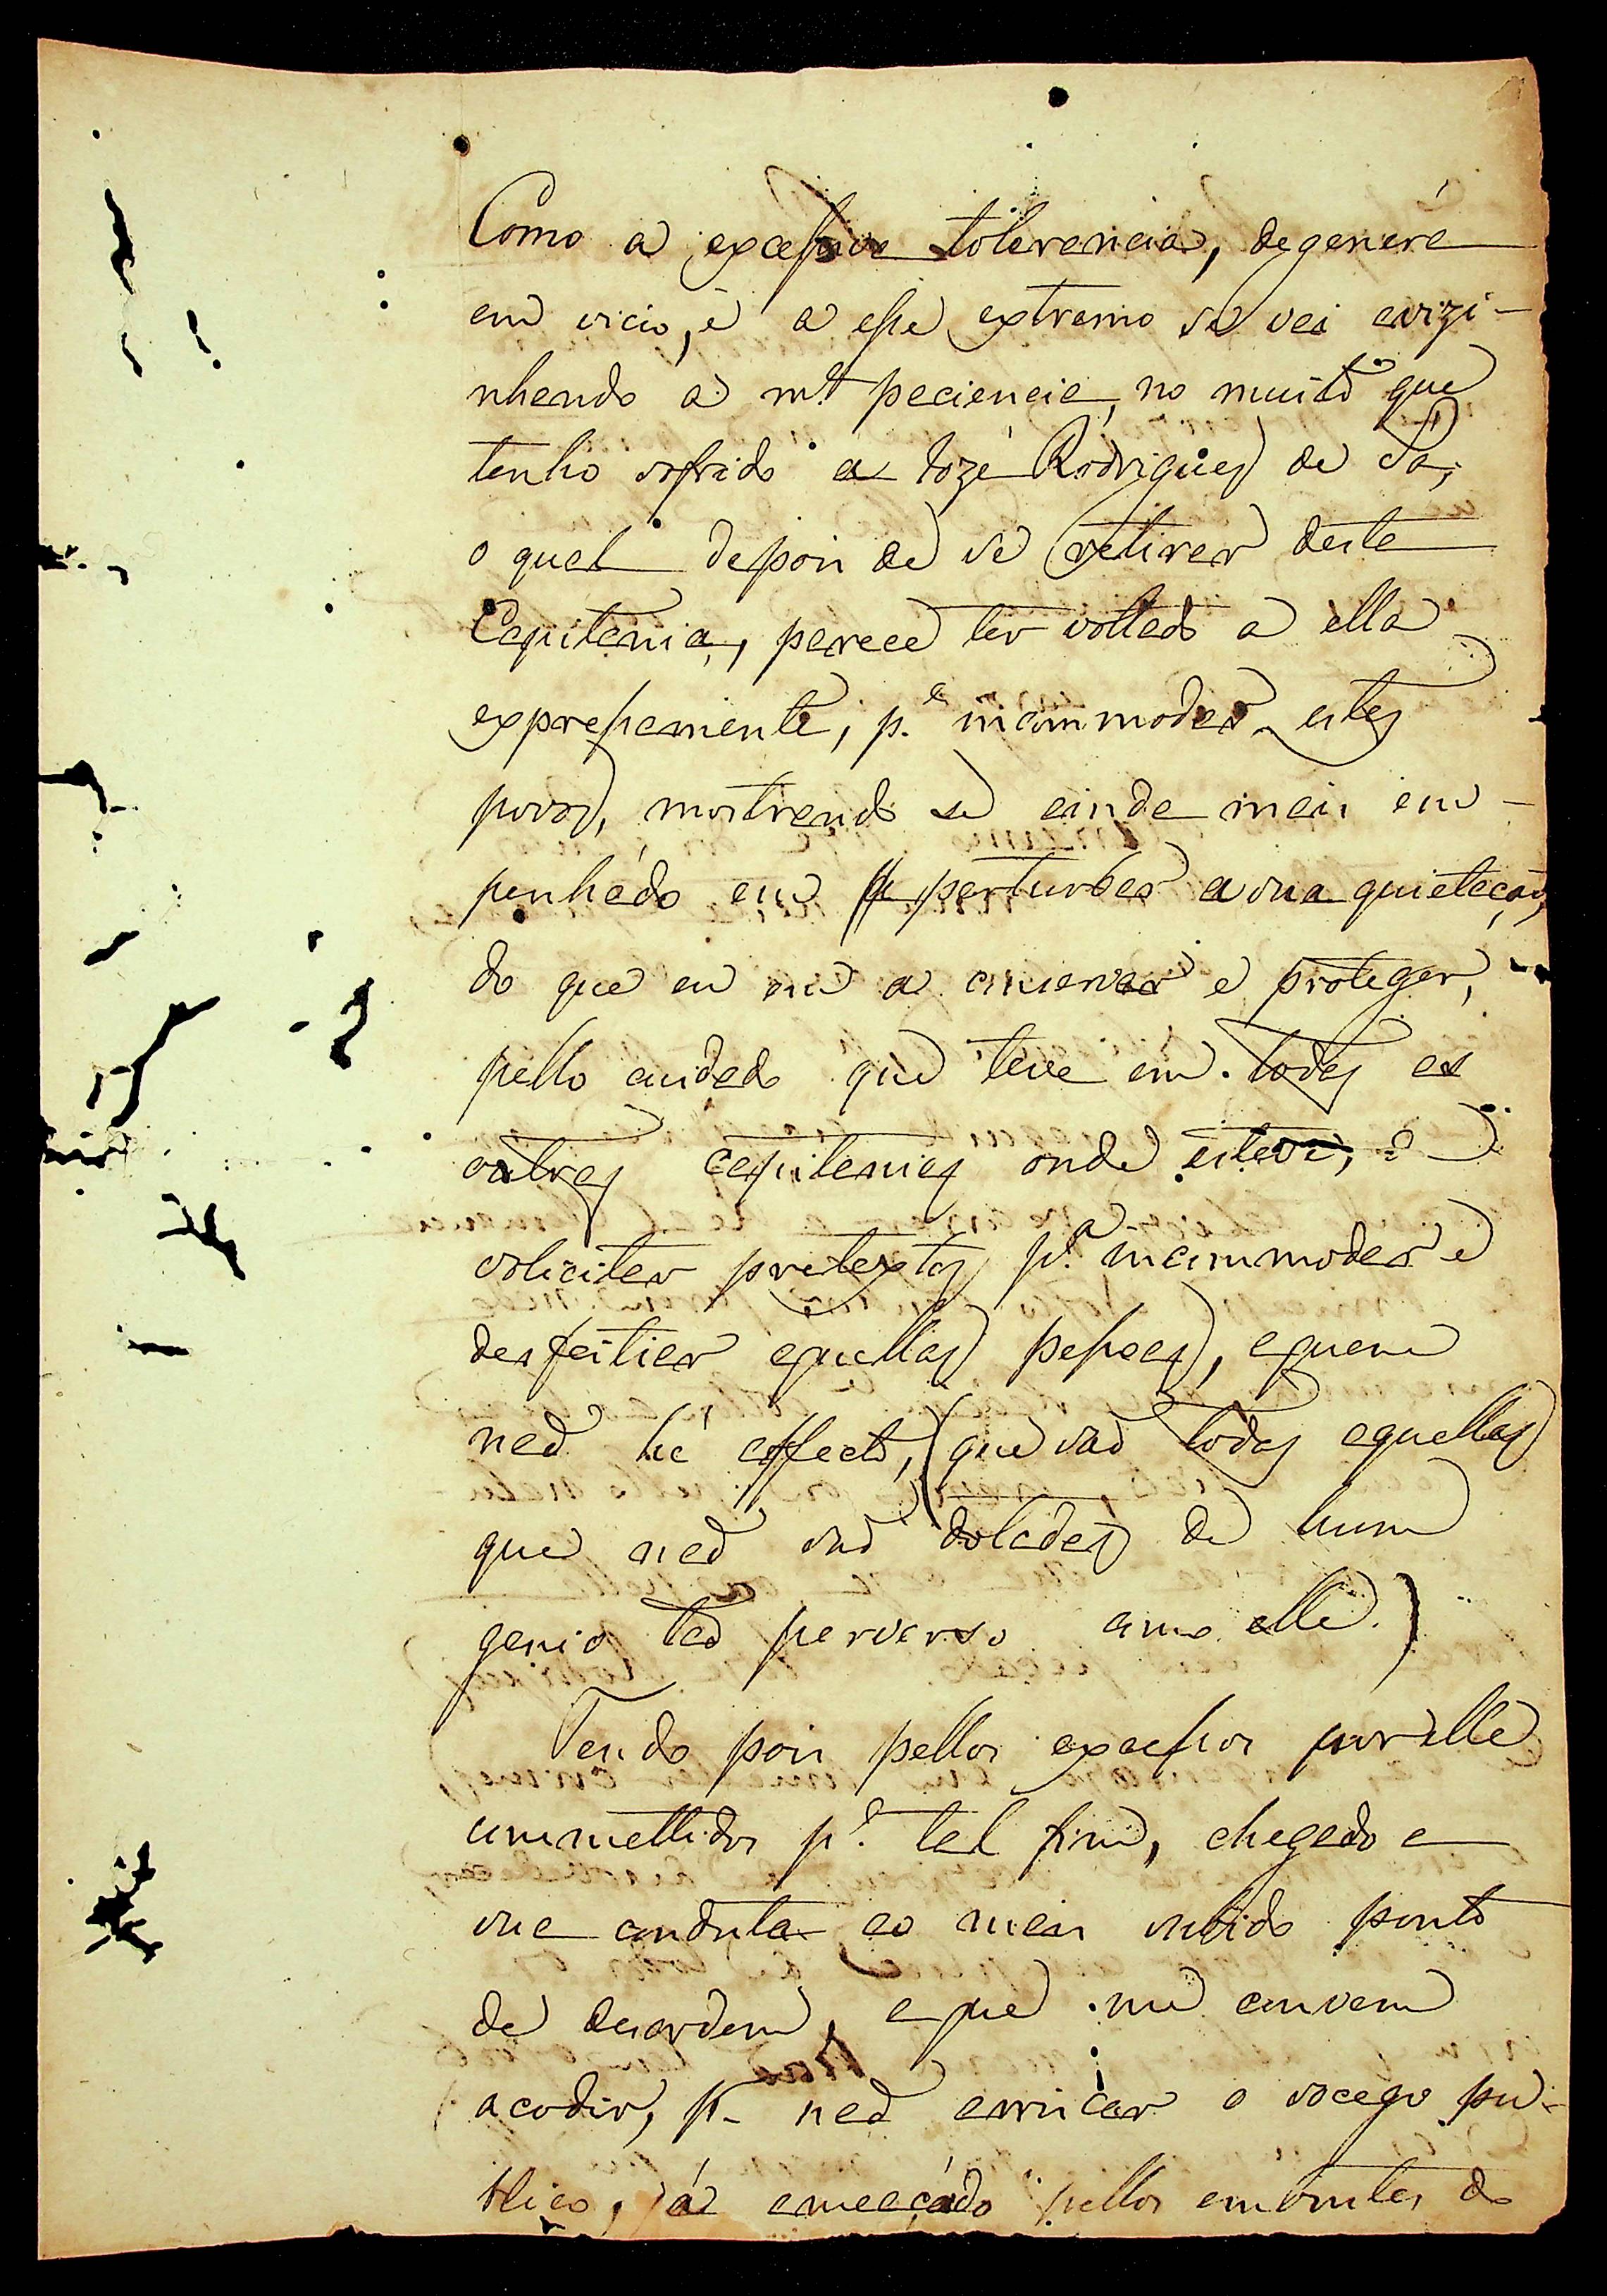 Como a excessiva tolerancia, degenéra
em vicio, e a esse extremo se vai avizi-
nhando a m.ª paciencia, no muito que
tenho sofrido a Jozé Rodrigues de Sá,
o qual depois de se retirar desta
Capitania, parece ter voltado a ella
expressamente, p.ª incommodar estes
povos, mostrando se ainda mais em-
penhado em perturbar a sua quietação,
do que eu em a conservar e proteger,
pello cuidado que teve em todas as
outras capitanias onde esteve, de
solicitar pretextos p.ª incommodar e
desfeitiar aquellas pessoas, aquem
naõ hé affecto, (que saõ todas aquellas
que naõ saõ dotadas de hum
genio taõ perverso como elle.)
Tendo pois pellos excessos por elle
commettidos p.ª tal fim, chegado a
sua conduta ao mais subido ponto
de desordem, a que me convem
acodir, p.ª naõ arriscar o socego pu-
blico, já ameaçado pellos embustes do